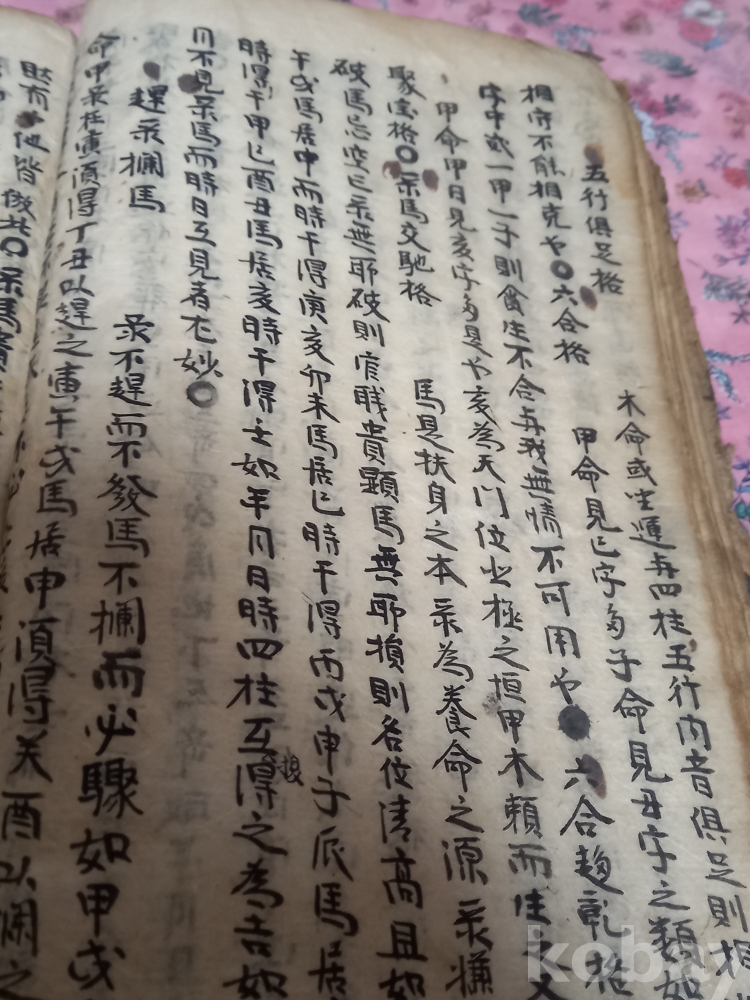 五行俱足格
木命或坐運與四柱五行内音俱足則相
相守不能相克也○六合格
甲命見己字多子命見丑字之類如
字中或一甲一子則貪生不合與我無情不可用也 六合趨乾格
甲命甲日見亥字多是也亥為天门位北極之垣甲木賴而生
聚宝格○彔馬交馳格
馬是扶身之本彔為養命之源彔嫌
破馬忌空亡彔無耶破則官職貴顕馬無耶損則名位清高且如
午戌馬居申而時干得庚亥卯未馬居巳時干得丙戊申子辰馬居
時得于甲巳酉丑馬居亥時干得壬如年月日時四柱互換得之為吉如
月不見彔馬而時日互見者尤妙○
趕彔攔馬
彔不趕而不發馬不攔而必驟如甲戌
命甲彔在寅須得丁丑以趕之寅午戌馬居申須得癸酉以攔之
財有 他皆倣此○彔馬
kobay